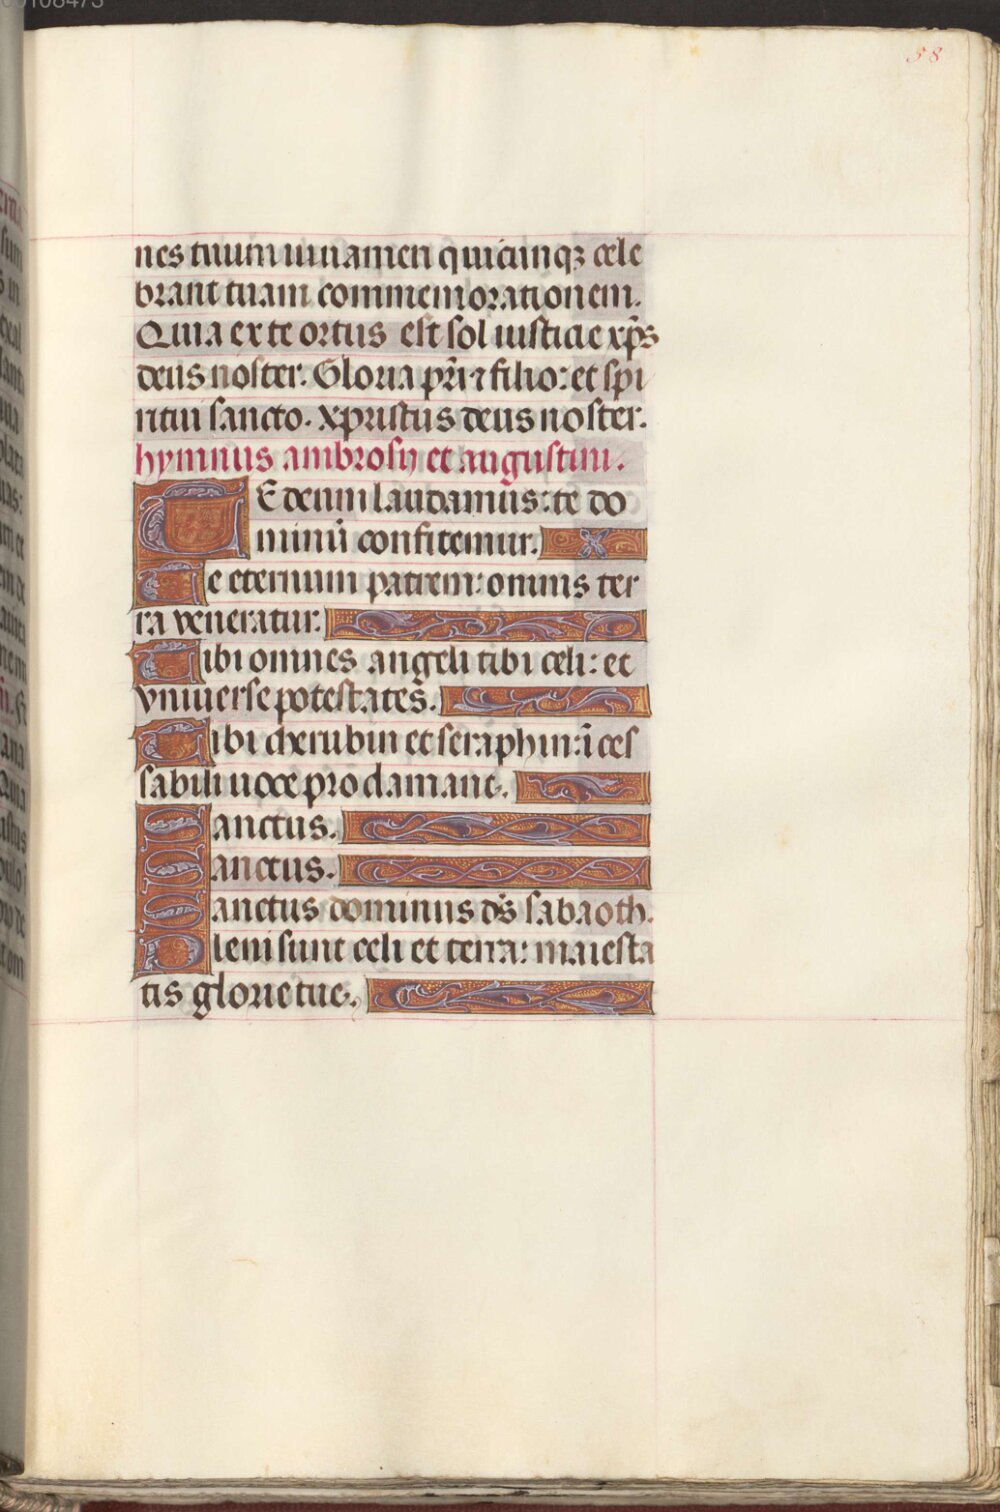 58
nes tuum iuuamen quicunqꝫ cele
brant tuam commemorationem.
Quia ex te ortus est sol iusticie xp̄s
deus noster. Gloria pr̄i ⁊ filio: et spi
ritui sancto. xpristus deus noster.
hymnus ambrosij et augustini.
TE deum laudamus: te do
minū confitemur.
Te eternum patrem: omnis ter
ra veneratur.
Tibi omnes angeli tibi celi: et
vniuerse potestates.
Tibi cherubin et seraphin: ī ces
sabili uoce proclamant.
Sanctus.
Sanctus.
Sanctus dominus ds̄ sabaoth.
Pleni sunt celi et terra: maiesta
tis glorie tue.